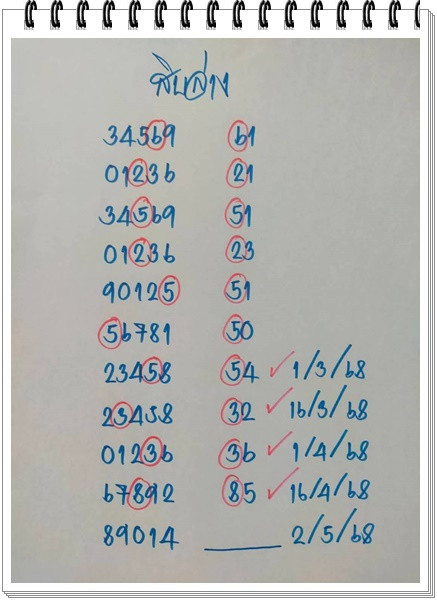 สิบล่าง
34569 61
01236 21
34569 51
01236 23
90125 51
56781 50
23458 54 ✓ 1/3/68
23458 32 ✓ 16/3/68
01236 36 ✓ 1/4/68
67892 85 ✓ 16/4/68
89014 ____ 2/5/68